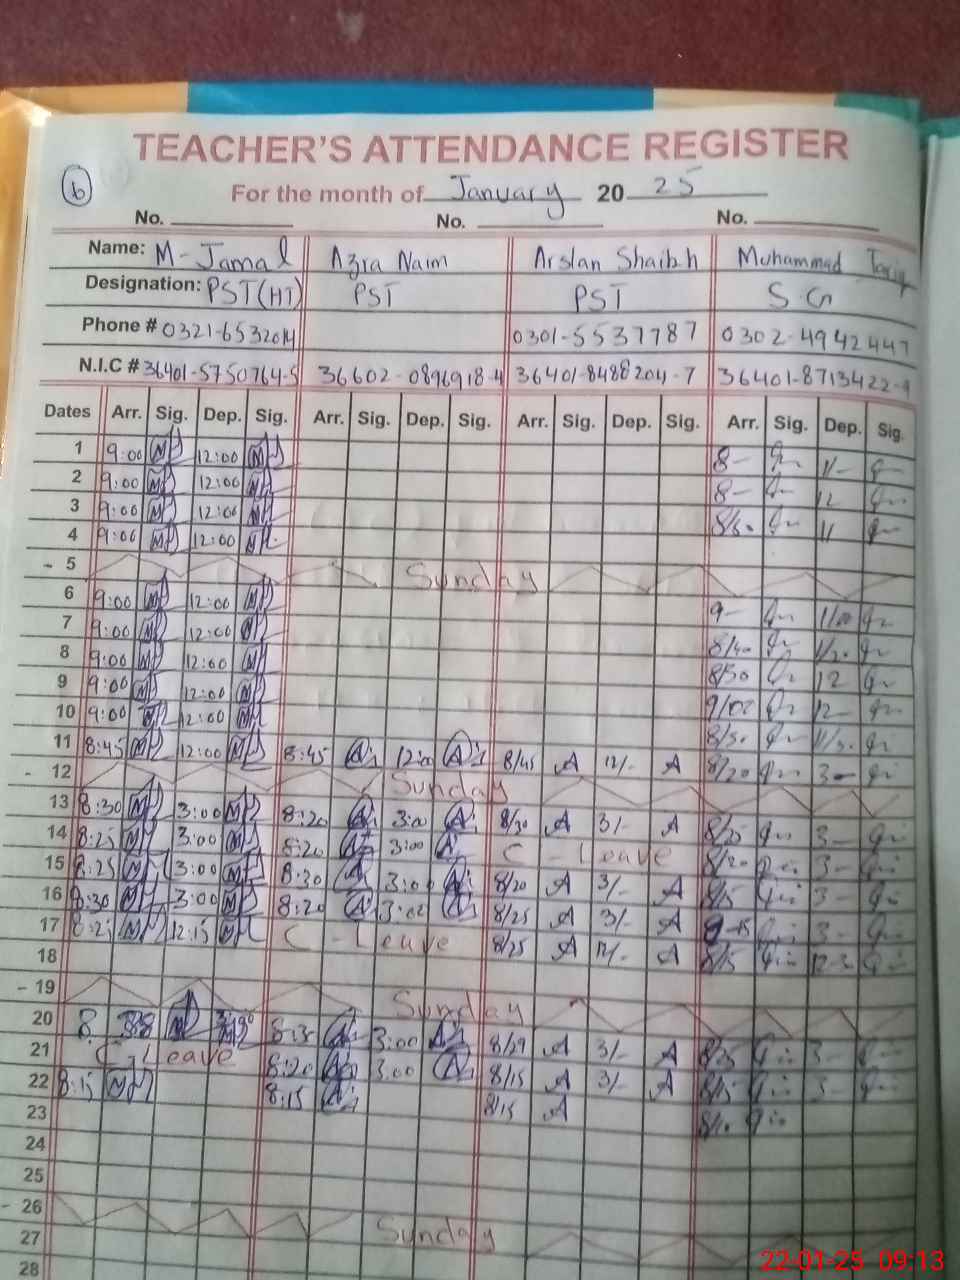 TEACHER'S ATTENDANCE REGISTER
6 For the month of January 2025
No. No. No.
Name: M-Jamal Azra Naim Arslan Shaikh Muhammad Tariq
Designation: PST(HT) PST PST S.G
Phone # 0321-6532014 0301-5537787 0302-4942447
N.I.C # 36401-5750764-5 36602-0896918-4 36401-8488204-7 36401-8713422-9
Dates Arr. Sig. Dep. Sig. Arr. Sig. Dep. Sig. Arr. Sig. Dep. Sig. Arr. Sig. Dep. Sig.
1 9:00 12:00 8- 11-
2 9:00 12:00 8- 12
3 9:00 12:00 8/50 11
4 9:00 12:00
- 5 Sunday
6 9:00 12:00 9- 11/00
7 9:00 12:00 8/40
8 9:00 12:00 8/50 12
9 9:00 12:00 9/02 12-
10 9:00 12:00 8/50
11 8:45 12:00 8:45 12:00 8/45 A 12/- A 8/20 3-
- 12 Sunday
13 8:30 3:00 8:20 3:00 8/30 A 3/- A 8/25 3-
14 8:25 3:00 8:20 3:00 C-Leave 8/20 3-
15 8:25 3:00 8:30 3:00 8/20 A 3/- A 8/15 3-
16 8:30 3:00 8:20 3:02 8/25 A 3/- A 3-
17 8:25 12:15 C-Leave 8/25 A 12/- A 8/15
18
- 19 Sunday
20 8:35 3:00 8/29 A 3/- A 8/25 3-
21 C-Leave 8:20 3:00 8/15 A 3/- A 8/15 3-
22 8:15 8:15 8/15 A 8/10
23
24
25
- 26 Sunday
27
28
22-01-25 09:13